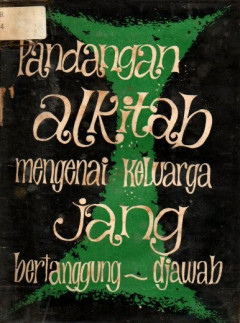 Pandangan
alkitab
mengenai keluarga
jang
bertanggung~djawab